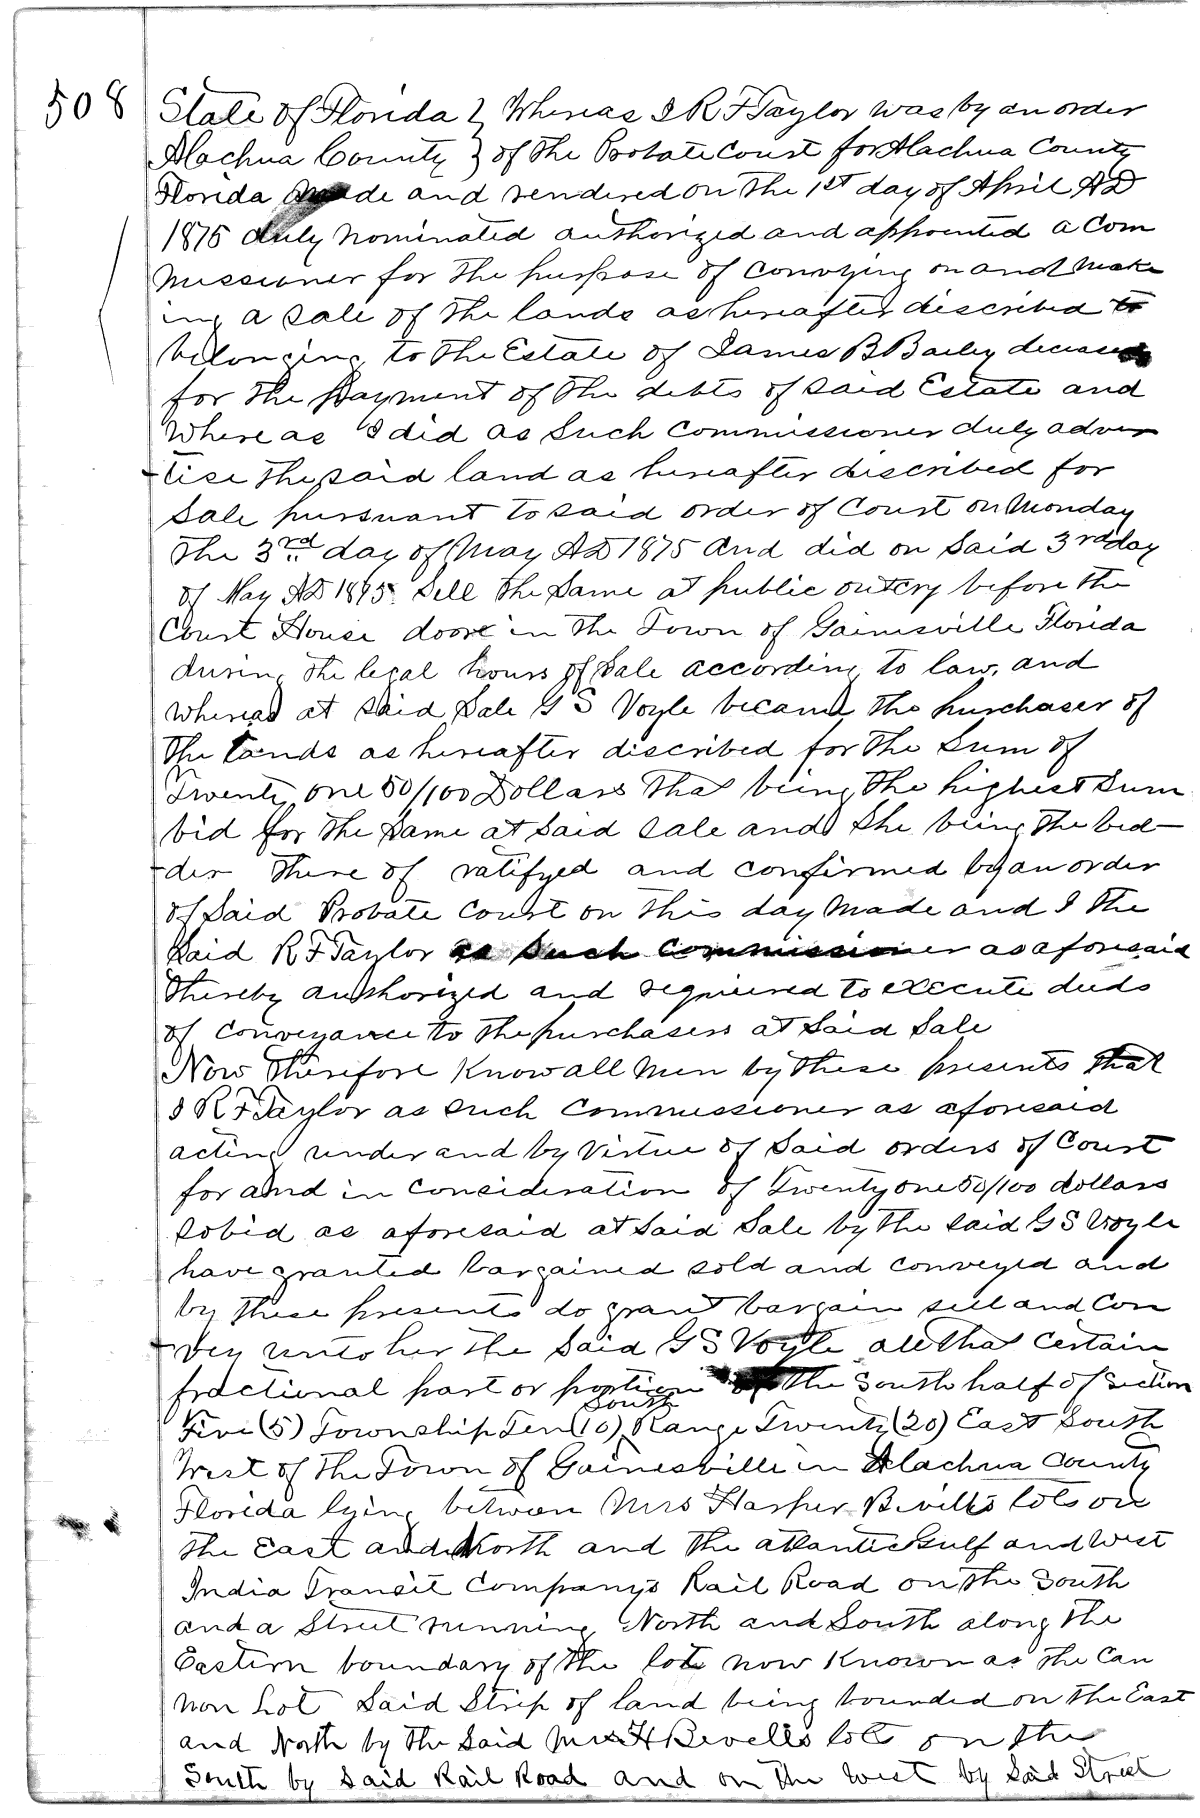 508
State of Florida } Whereas I R F Taylor was by an order
Alachua County } of the Probate Court for Alachua County
Florida made and rendered on the 1st day of April AD
1875 duly nominated authorized and appointed a Com
missioner for the purpose of conveying on and make
ing a sale of the lands as hereafter discribed to
belonging to the Estate of James B Bailey deceased
for the payment of the debts of said Estate and
Whereas I did as such commissioner duly adver
tise the said land as hereafter discribed for
Sale pursuant to said order of Court on Monday
the 3rd day of May AD 1875 and did on said 3rd day
of May AD 1875 Sell the same at public outcry before the
Court House doore in the Town of Gainesville Florida
during the legal hours of Sale according to law, and
whereas at said Sale G S Voyle became the purchaser of
the lands as hereafter discribed for the Sum of
Twenty one 50/100 Dollars that being the highest Sum
bid for the same at said sale and She being the bid-
der there of ratifyed and confirmed by an order
of said Probate Court on this day made and I the
said R F Taylor as such commissioner as aforesaid
thereby authorized and requiered to execute deeds
of conveyance to the purchasers at said Sale
Now therefore Know all men by these presents that
I R F Taylor as such Commissioner as aforesaid
acting under and by virtue of said orders of Court
for and in consideration of Twenty one 50/100 dollars
so bid as aforesaid at said Sale by the said G S Voyle
have granted bargained sold and conveyed and
by these presents do grant bargain sell and con
vey unto her the said G S Voyle all that certain
fractional part or portion of the South half of Section
South
Five (5) Township Ten (10) Range Twenty (20) East South
West of the Town of Gainesville in Alachua County
Florida lying between Mrs Harper Bevill's lots on
the East and North and the Atlantic Gulf and West
India Transit Company's Rail Road on the South
and a Street running North and South along the
Eastern boundary of the lot now Known as the Can
non Lot Said Strip of land being bounded on the East
and North by the said Mrs H Bevell's lot on the
South by said Rail Road and on the West by said Street